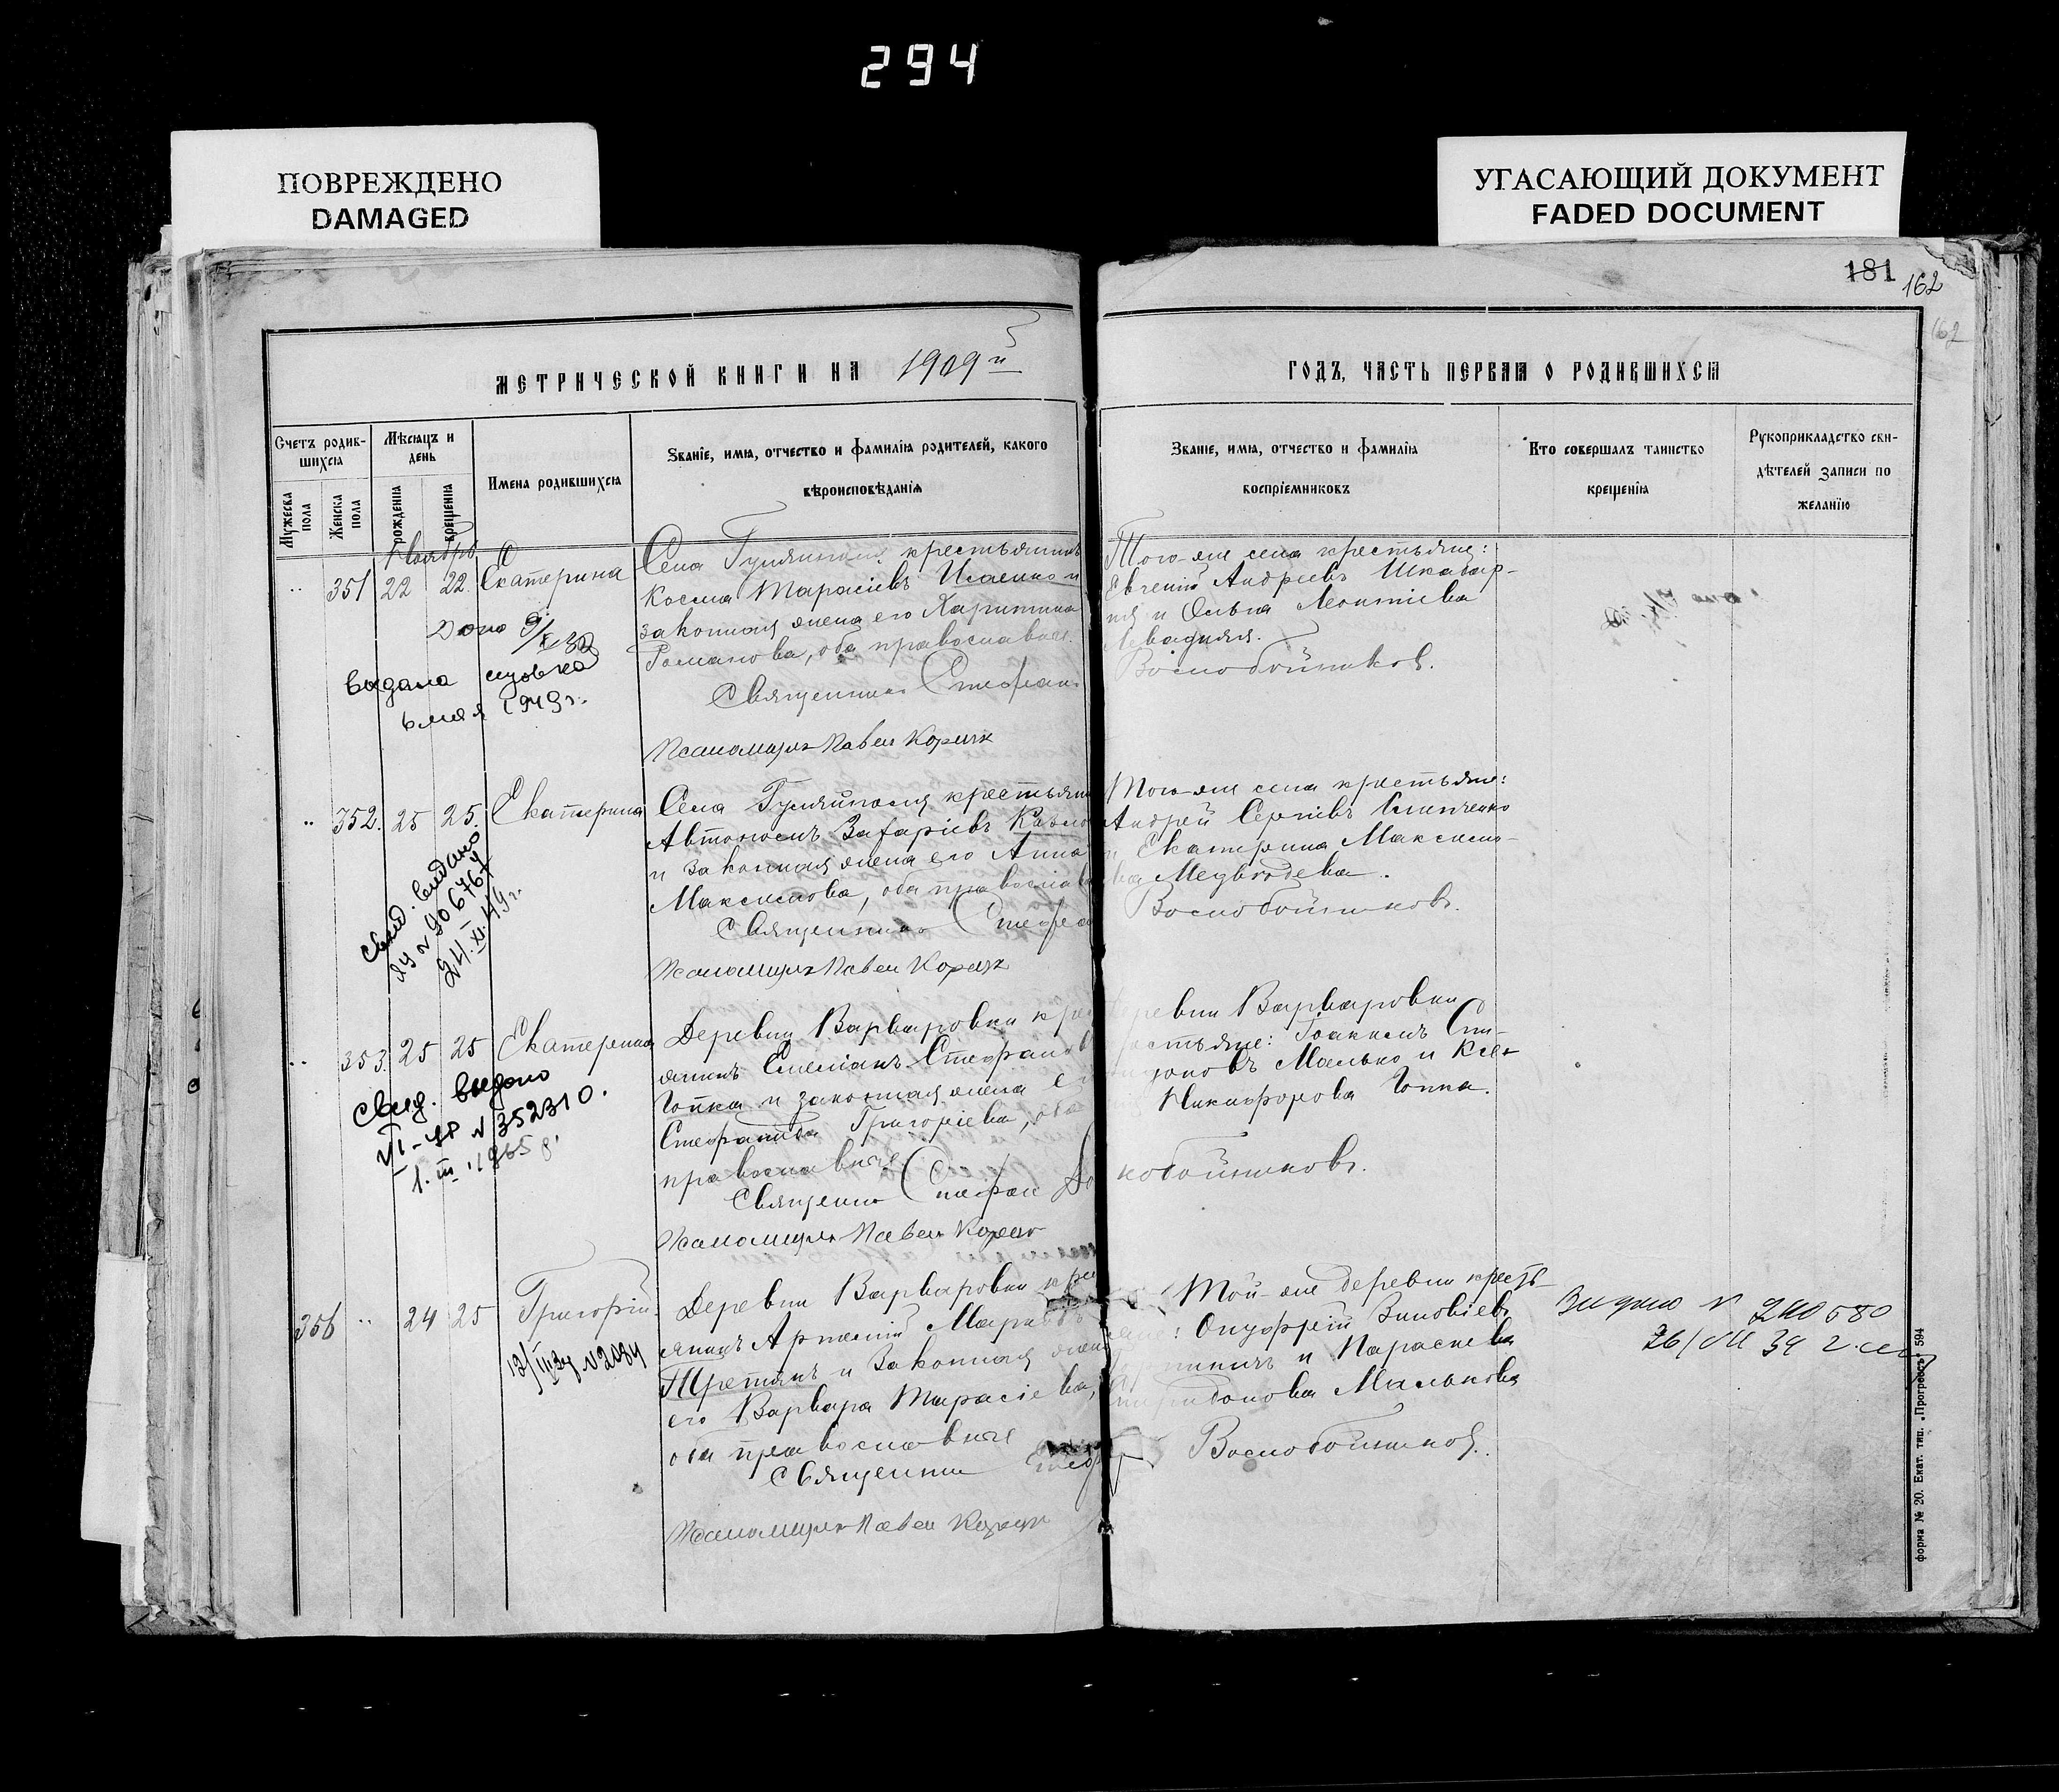 294
ПОВРЕЖДЕНО
DAMAGED
УГАСАЮЩИЙ ДОКУМЕНТ
FADED DOCUMENT
181
162
162
МЕТРИЧЕСКОЙ КНИГИ НА 1909й
ГОДЪ, ЧАСТЬ ПЕРВАЯ О РОДИВШИХСЯ
Счетъ родив-
шихся
Мужеска
пола
Женска
пола
Мѣсяцъ и
день
рожденія
крещенія
Имена родившихся
Званіе, имя, отчество и фамилія родителей, какого
вѣроисповѣданія
Званіе, имя, отчество и фамилія
воспріемниковъ
Кто совершалъ таинство
крещенія
Рукоприкладство сви-
дѣтелей записи по
желанію
Ноябрь
" 351 22 22. Екатерина
выдана
мая 1949 г.
Села Гуляйполя крестьянинъ
Косма Тарасіевъ Исаенко и
законная жена его Харитина
Романова, оба православные.
Священникъ Стефанъ
Псаломщикъ Павелъ
Того-же села крестьяне:
Евгеній Андреевъ
и Ольга Леонтіева
Воскобойниковъ.
" 352. 25 25. Екатерина
свид. выдано
№ 906764
24.XI.49 г.
Села Гуляйполя крестьянинъ
Автономъ Захаріевъ
и законная жена его Анна
Максимова, оба православ
Священникъ Стефан
Псаломщикъ Павелъ
Того-же села крестьяне:
Андрей Сергіевъ
и Екатерина Максимо-
ва Медвѣдева.
Воскобойниковъ.
" 353. 25 25 Екатерина
Свид. выдано
№ 352310.
1. III. 1965
Деревни Варваровки кре
янинъ Емеліанъ Стефанов
Гопка и законная жена ег
Стефанида Григоріева, оба
православные
Священникъ Стефан Во
Псаломщикъ Павелъ
Деревни Варваровки
крестьяне: Іоакимъ Спи-
ридоновъ Малько и Ксен
Никифорова Гопка.
кобойниковъ.
356 " 24 25 Григорій.
13/III 34 № 2084
Деревни Варваровки кре
янинъ Арсеній Марковъ
Третякъ и законная жена
его Варвара Тарасіева,
оба православные
Священникъ Стеф
Псаломщикъ Павелъ
Той-же деревни кресть
яне: Онуфрій Зиновіевъ
и Параскева
Спиридонова Малькова
Воскобойниковъ.
Видано № 240580
26/VII 34 г.
форма № 20. Екат. тип. „Прогрессъ" 594